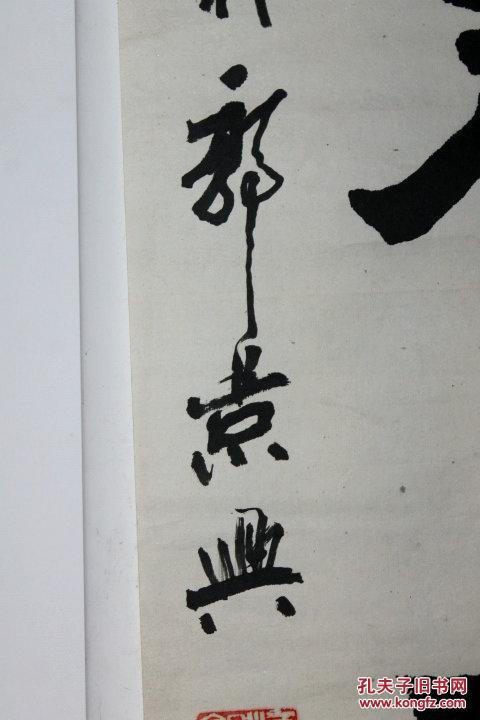 郭景興
孔夫子旧书网
KONGFZ.COM